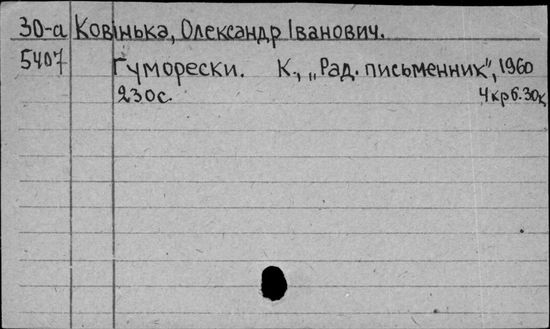 30-а Ковінька, Олександр Іванович.
5407 Гуморески. К., „Рад. письменник", 1960
230с. 4крб.30к